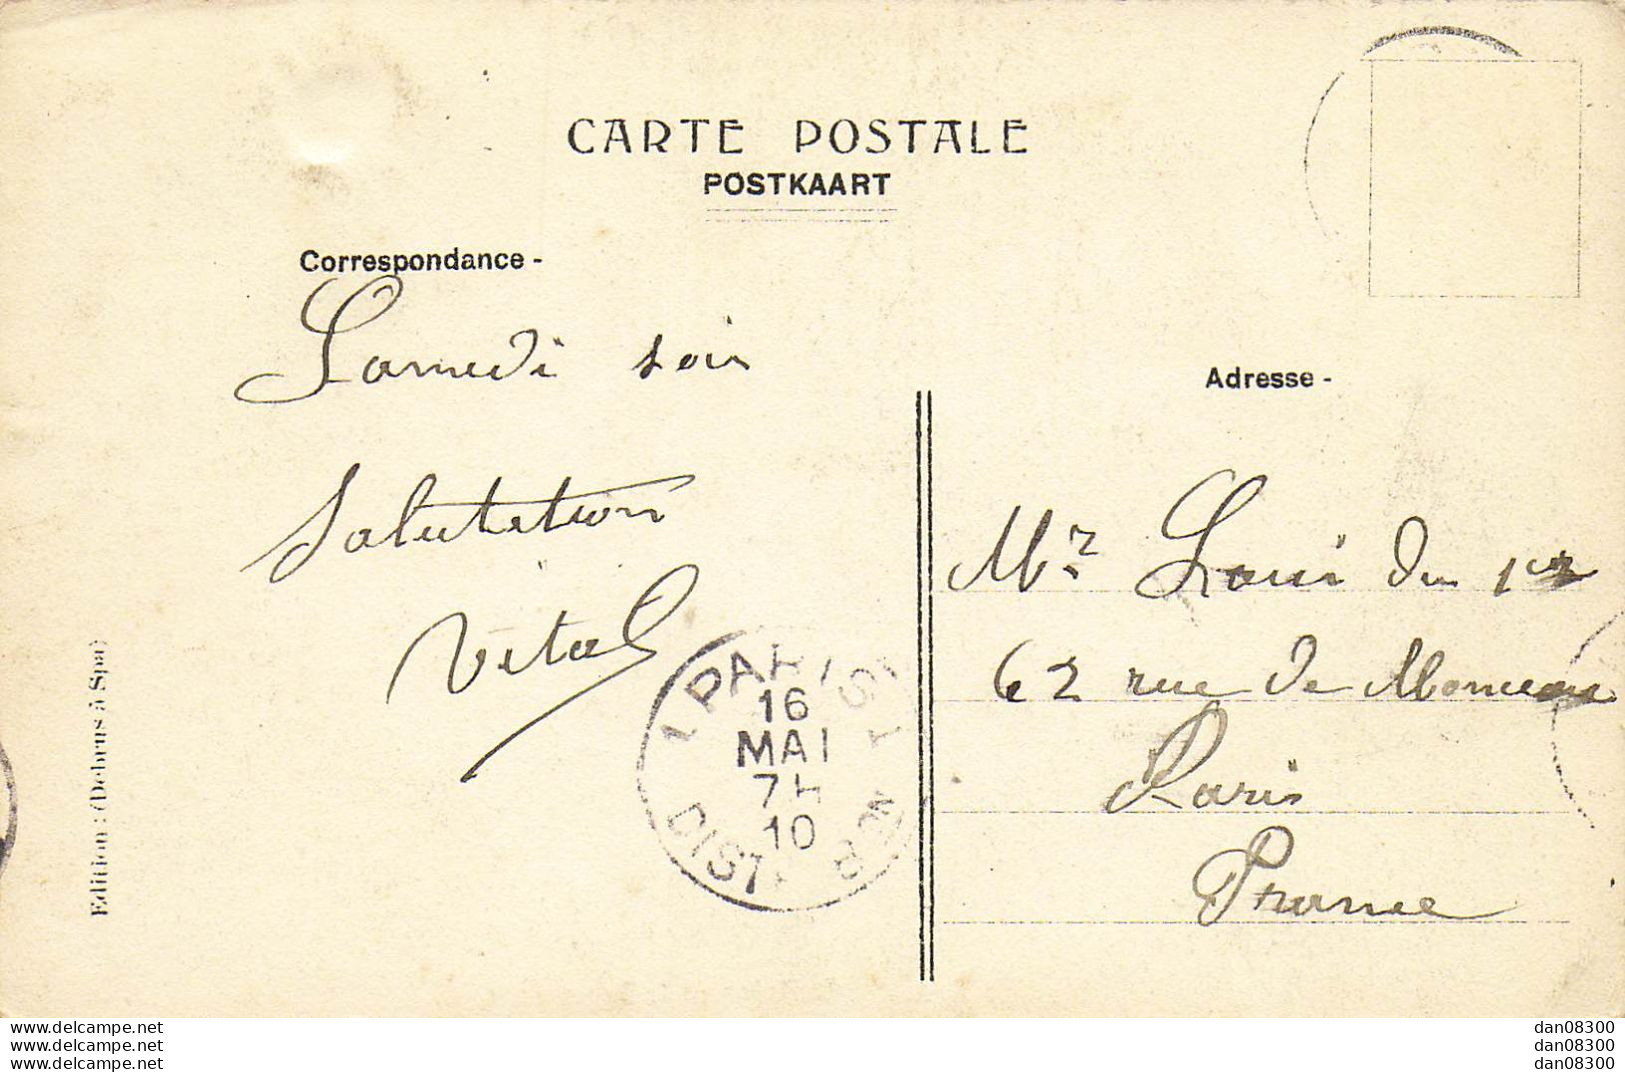 CARTE POSTALE
POSTKAART
Correspondance -
Samedi soir
Salutation
Vital
Adresse -
Mr Louis du 1er
62 rue de Monceau
Paris
France
PARIS
16
MAI
7H
10
DIST
Edition : (Debrus à Spa)
www.delcampe.net
www.delcampe.net
www.delcampe.net
dan08300
dan08300
dan08300